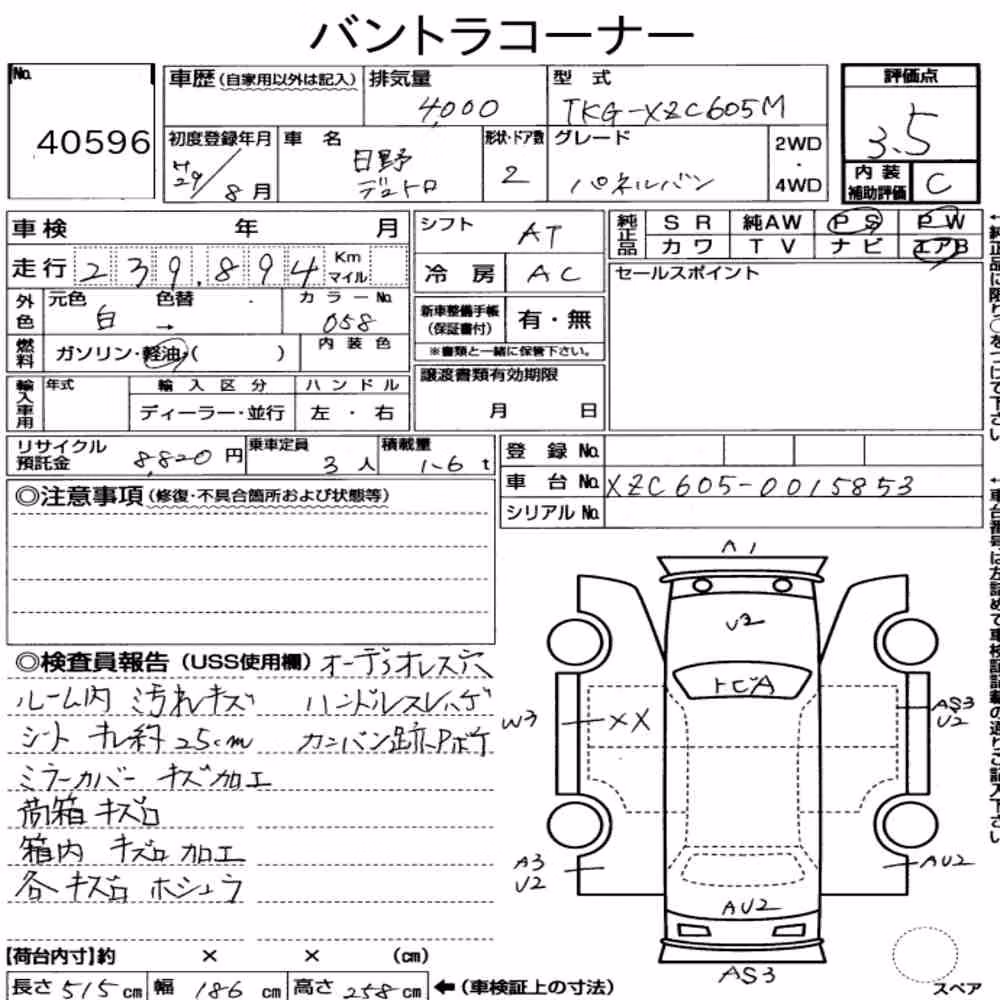 バントラコーナー
No. 40596
車歴 (自家用以外は記入) 排気量 4,000 型式 TKG-XZC605M
評価点 3.5
初度登録年月 H29/8月 車名 日野 デュトロ 形状・ドア数 2 グレード パネルバン 2WD・4WD
内装補助評価 C
車検 年 月 シフト AT 純正品 SR 純AW PS PW
カワ TV ナビ エアB
走行 239,894 Km マイル 冷房 AC セールスポイント
外色 元色 白 色替 → カラーNo. 058 新車整備手帳(保証書付) 有・無
燃料 ガソリン・軽油・( ) 内装色 ※書類と一緒に保管下さい。
輸入車用 年式 輸入区分 ディーラー・並行 ハンドル 左・右 譲渡書類有効期限 月 日
リサイクル預託金 8,820円 乗車定員 3人 積載量 1.6t 登録No.
車台No. XZC605-0015853
シリアルNo.
◎注意事項 (修復・不具合箇所および状態等)
◎検査員報告 (USS使用欄) オーディオレス穴
ルーム内 汚れキズ ハンドルスレハゲ
シート キレ約25cm カンバン跡
ミラーカバー キズ加工
荷箱キズ凹
箱内 キズ凹 加工
各キズ凹 ホシュラ
A1
U2
トビA
W3
XX
AS3
U2
A3
U2
AU2
AU2
AS3
スペア
【荷台内寸】約 × × (cm)
長さ 515cm 幅 186cm 高さ 258cm ←(車検証上の寸法)
←純正品に限り○をつけて下さい。